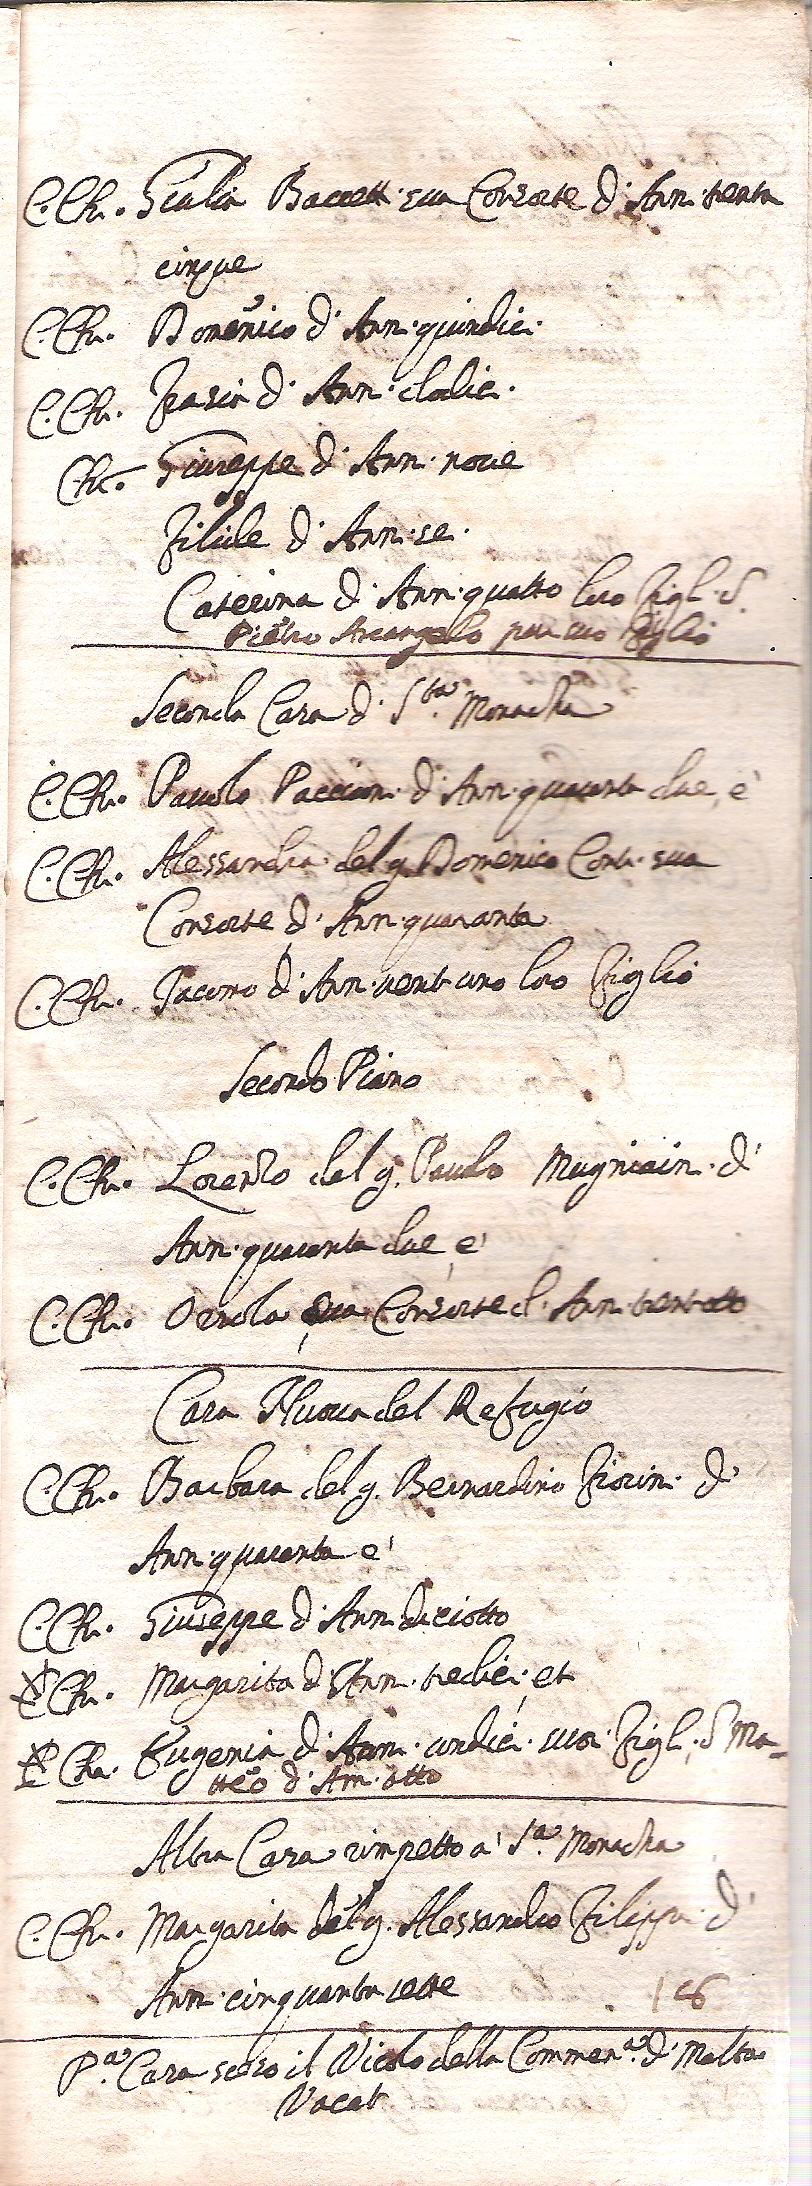 C. Ch. Giulia Baccett. sua Consorte d'Ann. trenta
cinque
C. Ch. Domenico d'Ann. quindic.
C. Ch. d'Ann. dodic.
Ch. Giuseppe d'Ann. nove
Filide d'Ann. se.
Caterina d'Ann. quatto loro Figl. S
Pietro Arcangelo pur suo figlio
Seconda Casa d. S.ta Monacha
C. Ch. Pauolo Paccion. d'Ann. quaranta due, e'
C. Ch. Alessandra del q. Domenico Cont. sua
Consorte d'Ann. quaranta
C. Ch. Jacomo d'Ann. vent uno loro figlio
Secondo Piano
C. Ch. Lorenzo del q. Paulo Mugniain. d'
Ann. quaranta due e'
C. Ch. Orsola sua Consorte d'Ann. trentotto
Casa Nuova del Refugio
C. Ch. Barbara del q. Bernardino Fiorin. d'
Ann. quaranta e'
C. Ch. Giuseppe d'Ann. diciotto
C. Ch. Margarita d'Ann. tredic. et
C. Ch. Eugenia d'Ann. undic. suoi Figl. S Ma-
tteo d'Ann. otto
Altra Casa rimpetto a' S.a Monacha
C. Ch. Margarita del q. Alessandro Filippi d'
Ann. cinquanta sette 16
P.a Casa sceso il Vicolo della Commen.a d'Malta
Vacat